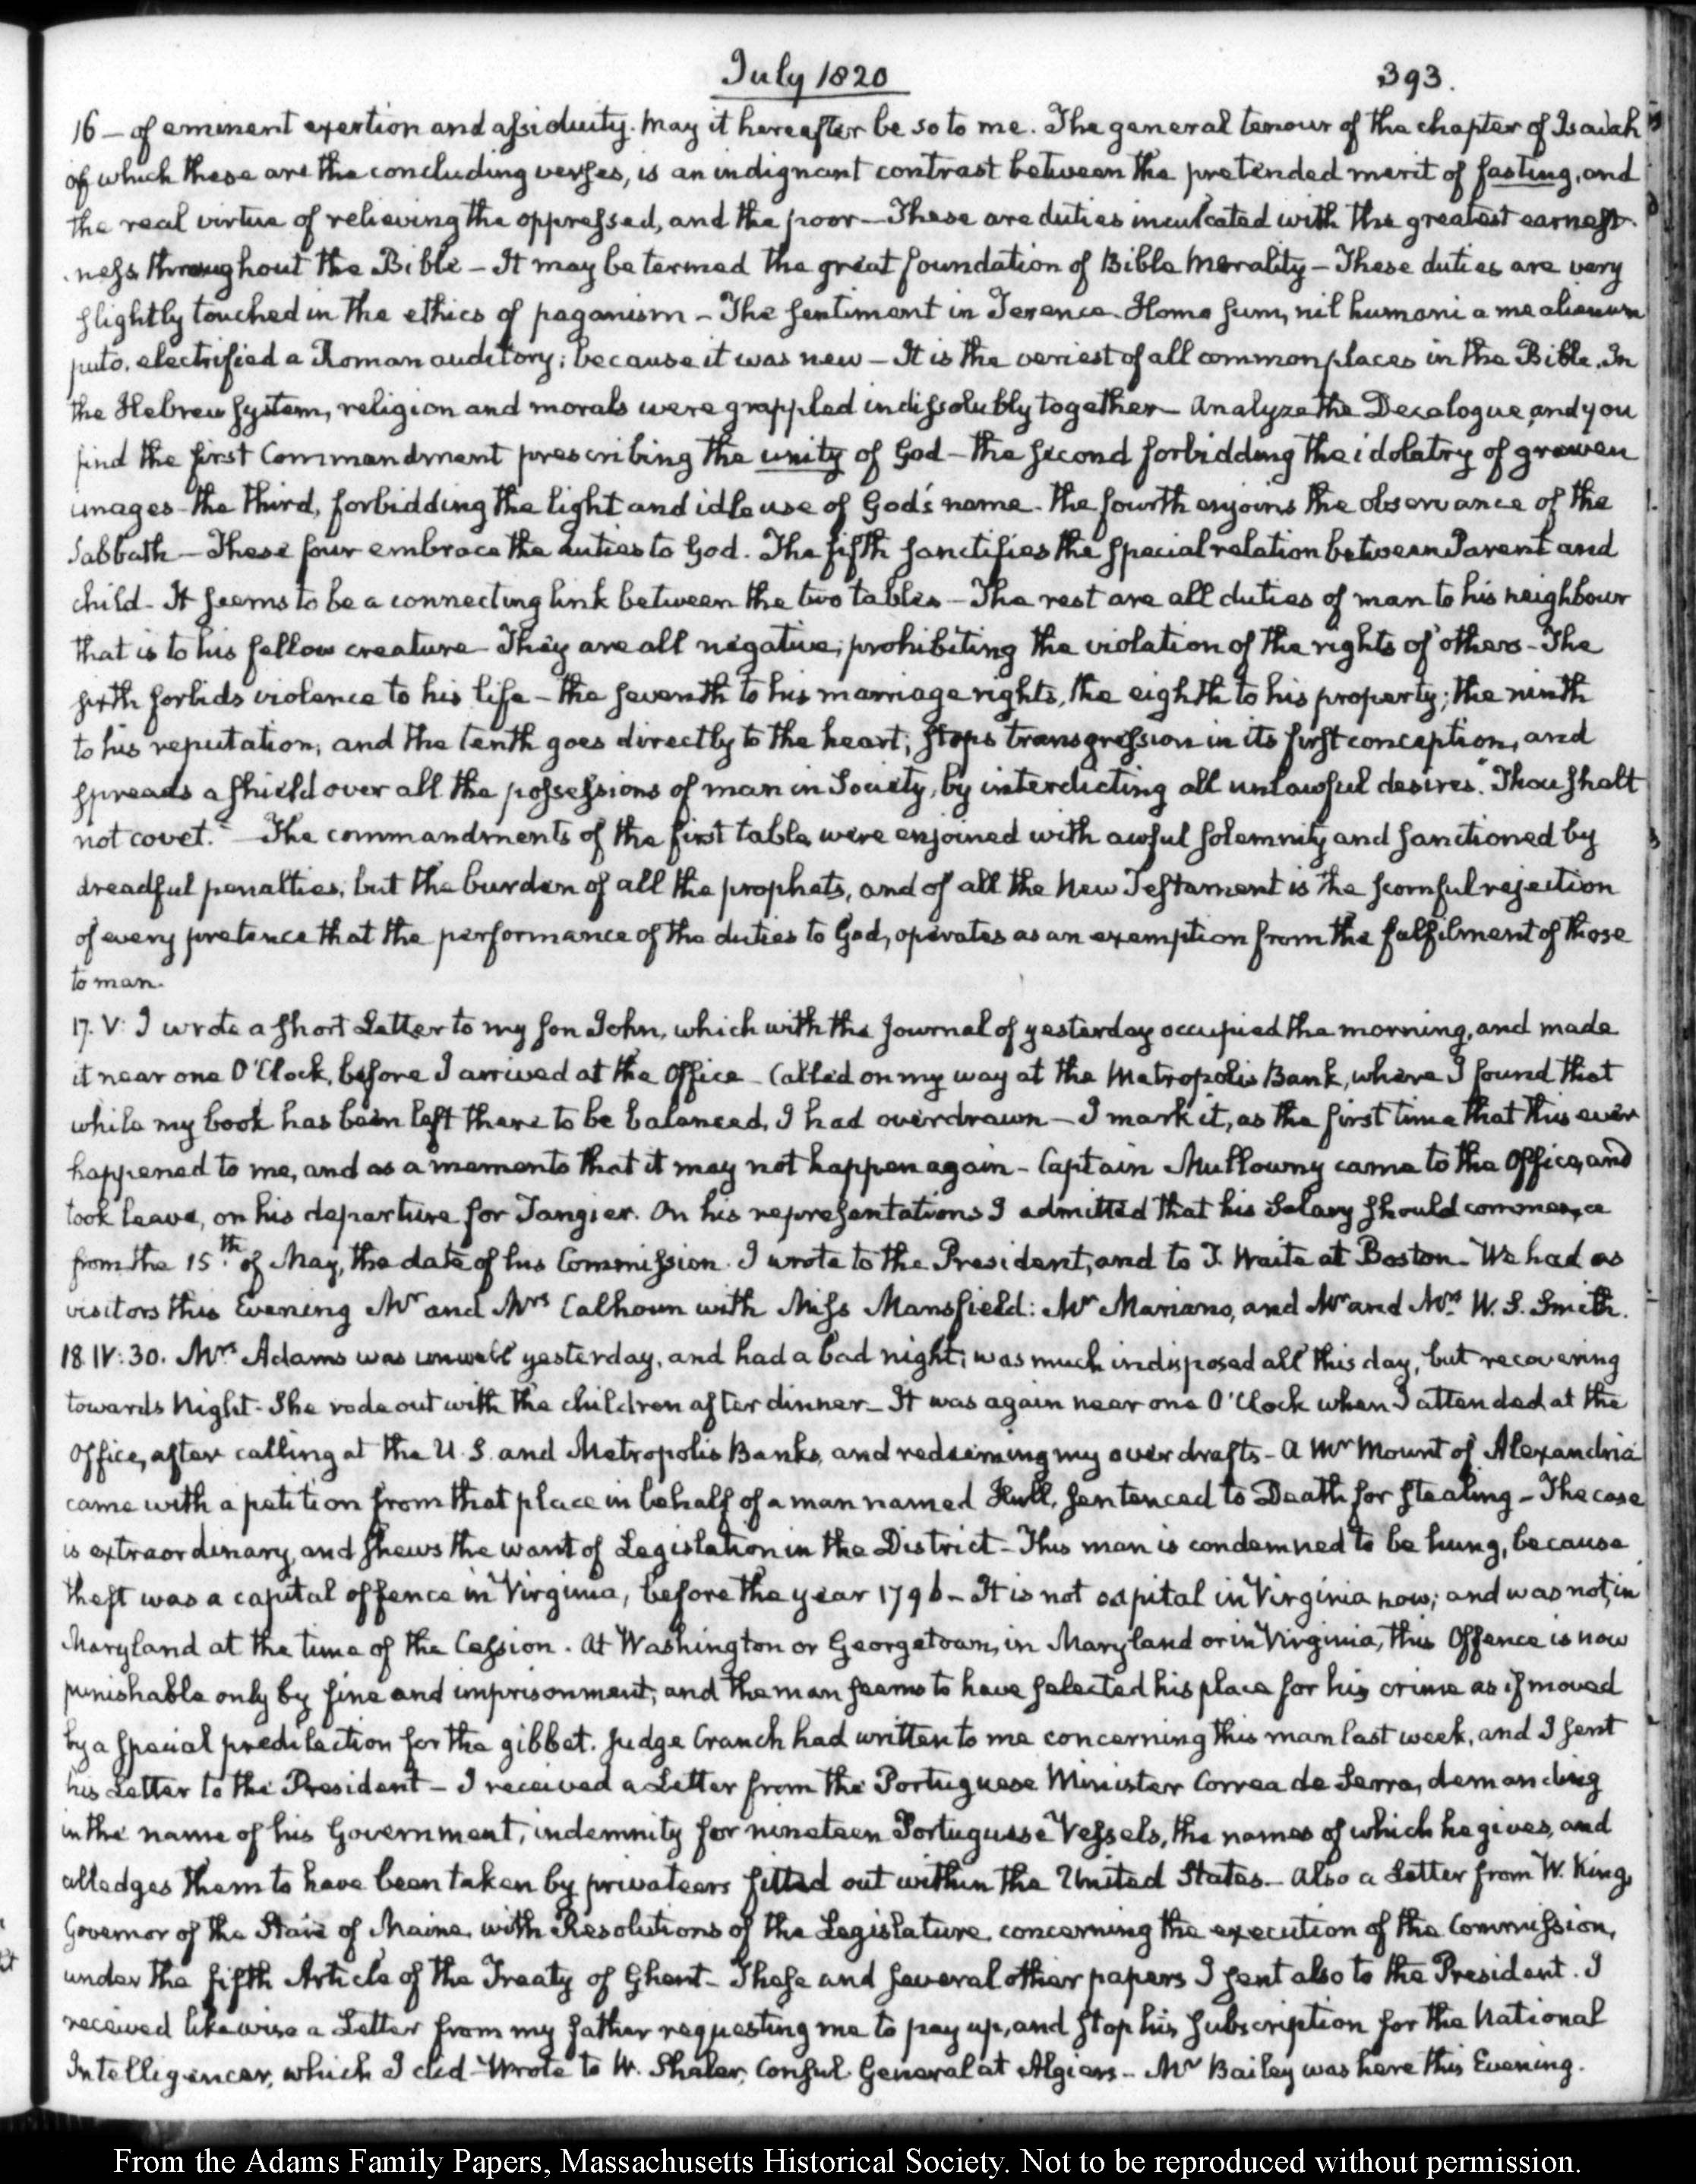 July 1820
393.
16 — of eminent exertion and assiduity. May it hereafter be so to me. The general tenour of the chapter of Isaiah
of which these are the concluding verses, is an indignant contrast between the pretended merit of fasting, and
the real virtue of relieving the oppressed, and the poor — These are duties inculcated with the greatest earnest-
-ness throughout the Bible — It may be termed the great foundation of Bible Morality — These duties are very
slightly touched in the ethics of paganism — The sentiment in Terence. Homo sum, nil humani a me alienum
puto, electrified a Roman auditory; because it was new — It is the veriest of all common places in the Bible. In
the Hebrew system, religion and morals were grappled indissolubly together — Analyze the Decalogue, and you
find the first Commandment prescribing the unity of God — the second forbidding the idolatry of graven
images — the third, forbidding the light and idle use of God's name — the fourth enjoins the observance of the
Sabbath — These four embrace the duties to God. The fifth sanctifies the special relation between Parent and
child — It seems to be a connecting link between the two tables — The rest are all duties of man to his neighbour
that is to his fellow creature — They are all negative; prohibiting the violation of the rights of others — The
sixth forbids violence to his life — the seventh to his marriage rights, the eighth to his property; the ninth
to his reputation; and the tenth goes directly to the heart; stops transgression in its first conception, and
spreads a shield over all the possessions of man in Society, by interdicting all unlawful desires. "Thou shalt
not covet." — The commandments of the first table were enjoined with awful solemnity and sanctioned by
dreadful penalties, but the burden of all the prophets, and of all the New Testament is the scornful rejection
of every pretence that the performance of the duties to God, operates as an exemption from the fulfilment of those
to man.
17. V: I wrote a short Letter to my son John, which with the Journal of yesterday occupied the morning, and made
it near one O'Clock, before I arrived at the Office — Called on my way at the Metropolis Bank, where I found that
while my book has been left there to be balanced, I had overdrawn — I mark it, as the first time that this ever
happened to me, and as a memento that it may not happen again — Captain Mullowny came to the Office, and
took leave, on his departure for Tangier. On his representations I admitted that his Salary should commence
from the 15th of May, the date of his Commission. I wrote to the President, and to T. Waite at Boston — We had as
visitors this Evening Mr and Mrs Calhoun with Miss Mansfield: Mr Mariano, and Mr and Mrs W. S. Smith.
18. IV:30. Mrs Adams was unwell yesterday, and had a bad night; was much indisposed all this day, but recovering
towards Night — She rode out with the children after dinner — It was again near one O'Clock when I attended at the
Office, after calling at the U.S. and Metropolis Banks, and redeeming my over drafts — A Mr Mount of Alexandria
came with a petition from that place in behalf of a man named Hull, sentenced to Death for stealing — The case
is extraordinary, and shews the want of Legislation in the District — This man is condemned to be hung, because
theft was a capital offence in Virginia, before the year 1796 — It is not capital in Virginia now; and was not, in
Maryland at the time of the Cession. At Washington or Georgetown, in Maryland or in Virginia, this Offence is now
punishable only by fine and imprisonment; and the man seems to have selected his place for his crime as if moved
by a special predilection for the gibbet. Judge Cranch had written to me concerning this man last week, and I sent
his Letter to the President — I received a Letter from the Portuguese Minister Correa de Serra, demanding
in the name of his Government, indemnity for nineteen Portuguese Vessels, the names of which he gives, and
alledges them to have been taken by privateers fitted out within the United States — Also a Letter from W. King,
Governor of the State of Maine, with Resolutions of the Legislature, concerning the execution of the Commission,
under the fifth Article of the Treaty of Ghent — These and several other papers I sent also to the President. I
received likewise a Letter from my father requesting me to pay up, and stop his subscription for the National
Intelligencer, which I did — Wrote to W. Shaler, Consul General at Algiers — Mr Bailey was here this Evening.
From the Adams Family Papers, Massachusetts Historical Society. Not to be reproduced without permission.